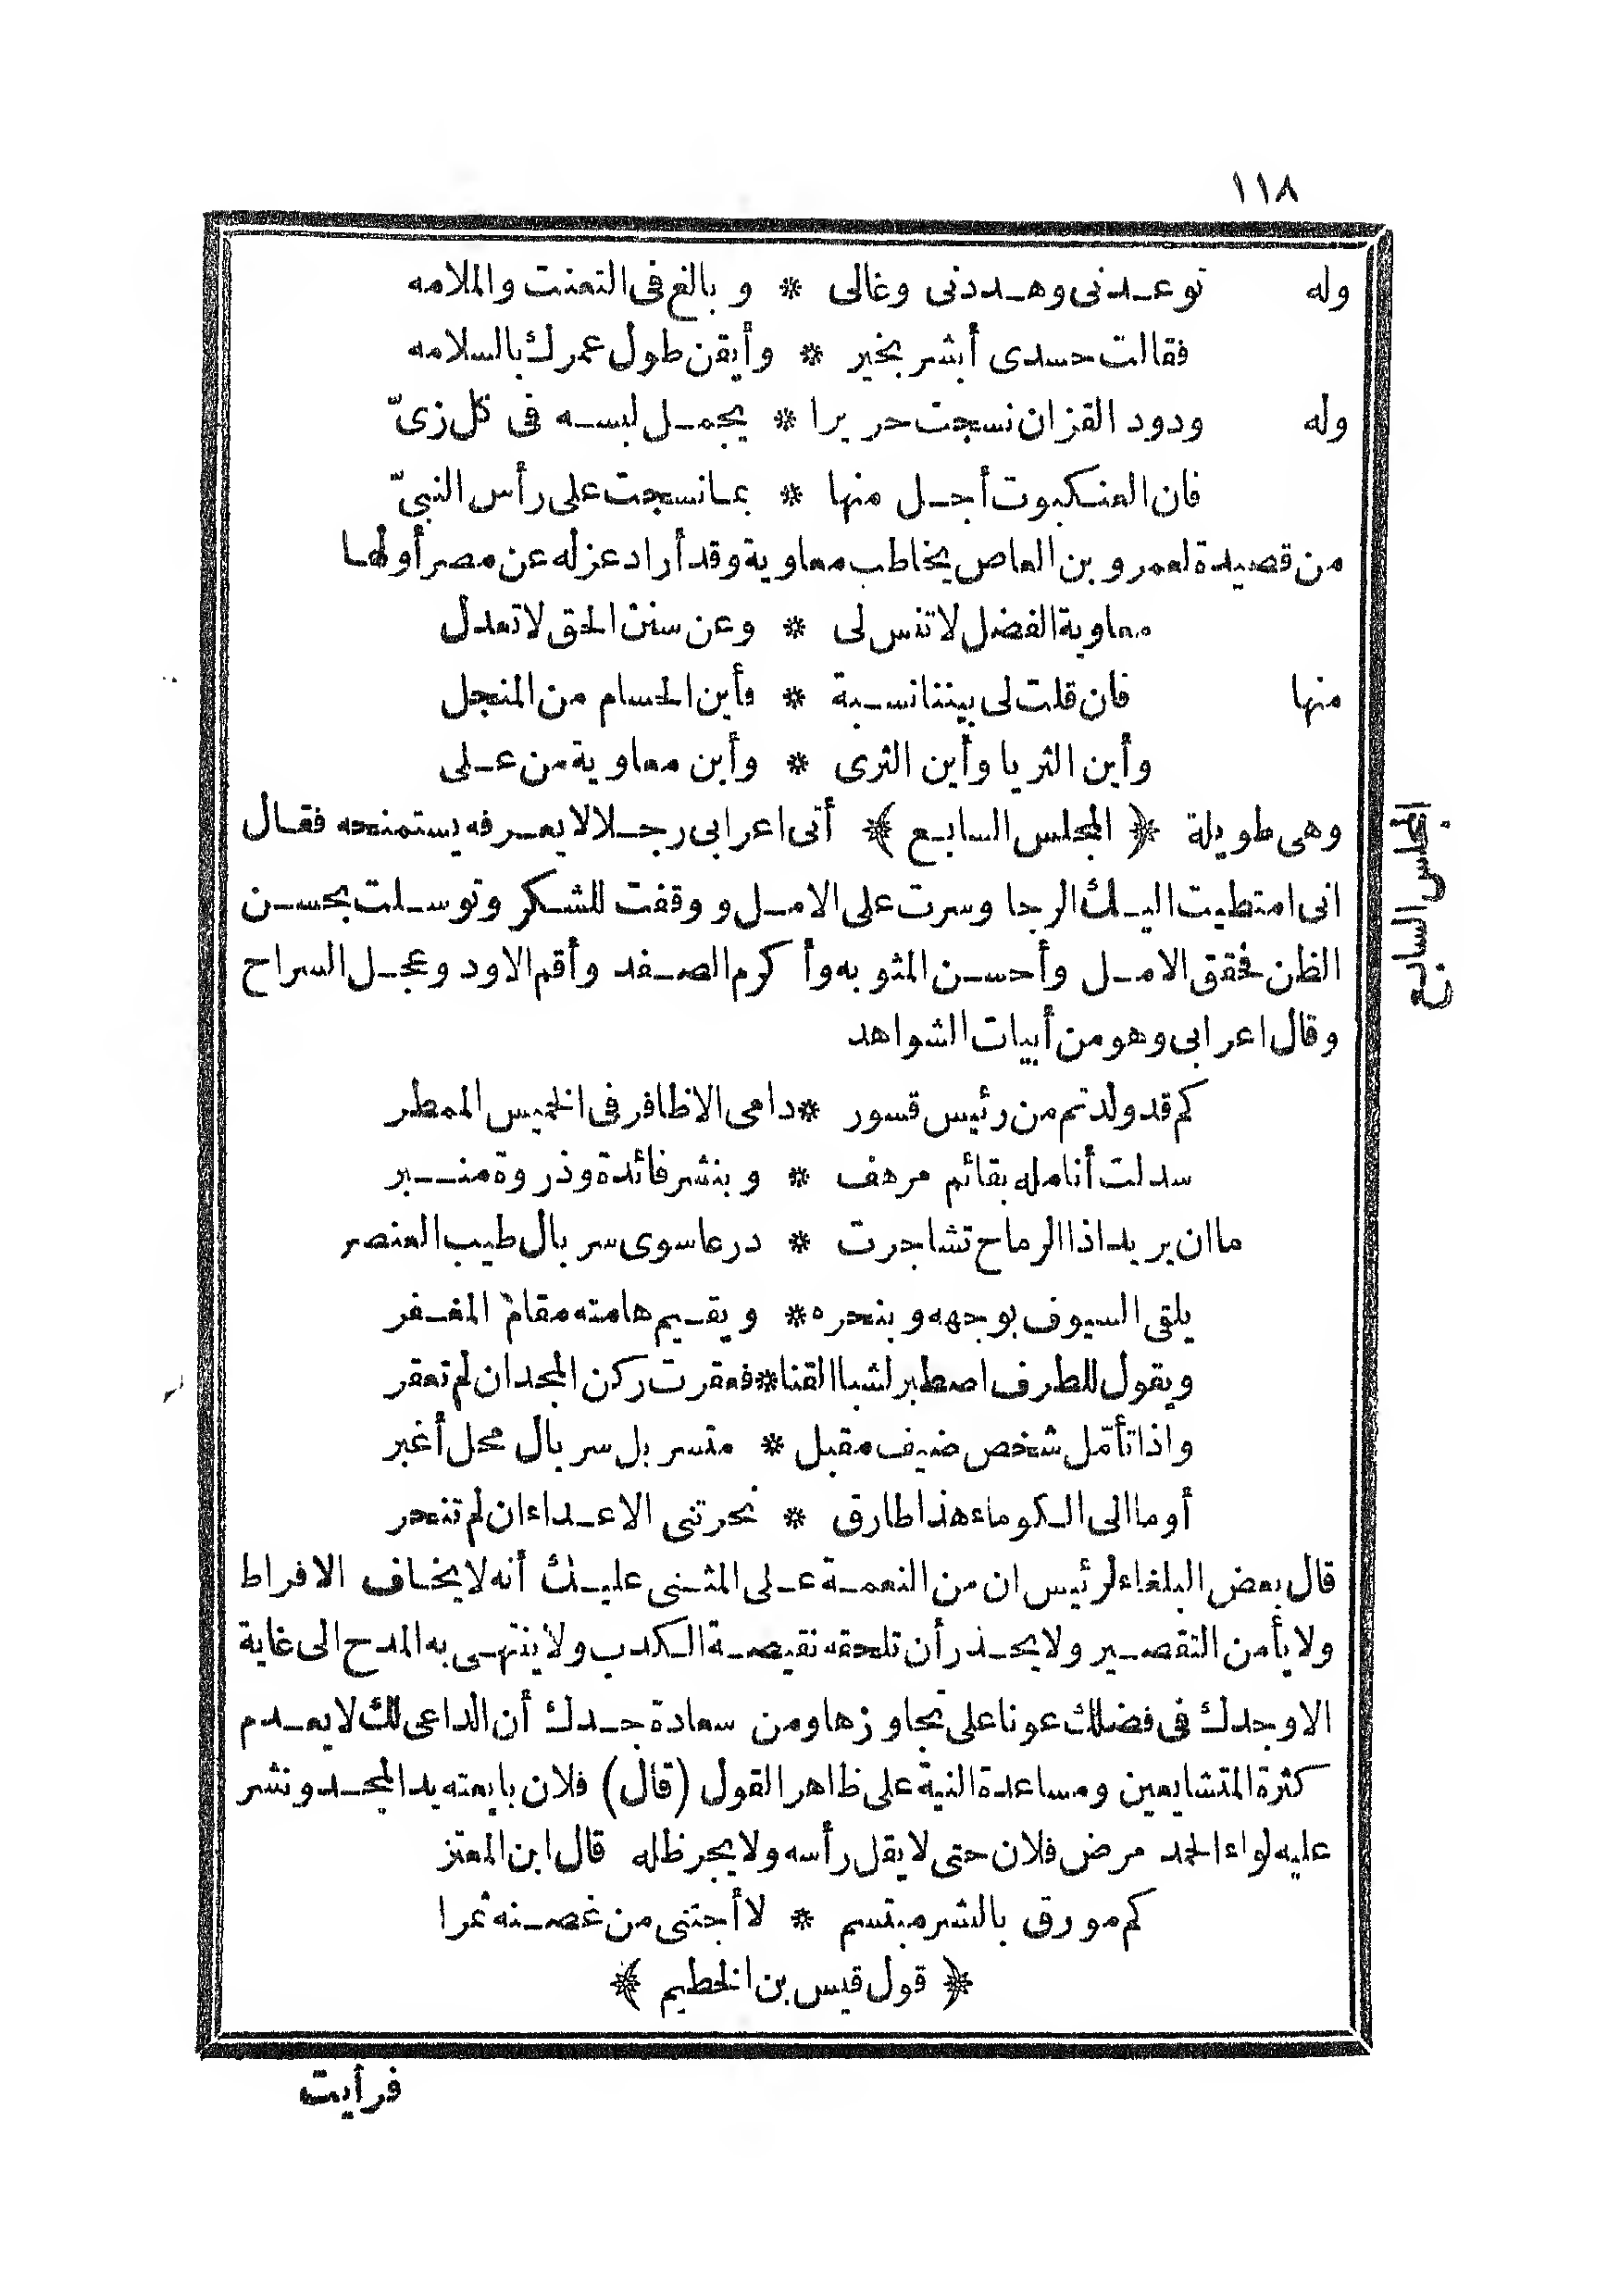 ١١٨
وله توعدنى وهددنى وغالى * وبالغ فى التعنت والملامه
فقالت حسدى أبشر بخير * وأيقن طول عمرك بالسلامه
وله ودود القزان نسجت حريرا * يجمل لبسه فى كل زىّ
فان العنكبوت أجل منها * بما نسجت على رأس النبىّ
من قصيدة لعمرو بن العاص يخاطب معاوية وقد أراد عزله عن مصر أولها
معاوية الفضل لا تنس لى * وعن سنن الحق لا تعدل
منها فان قلت لى بيننا نسبة * فأين الحسام من المنجل
وأين الثريا وأين الثرى * وأين معاوية من على
وهى طويلة ﴿ المجلس السابع ﴾ أتى اعرابى رجلا لا يعرفه يستمنحه فقال
انى امتطيت اليك الرجا وسرت على الامل ووقفت للشكر وتوسلت بحسن
الظن فحقق الامل وأحسن المثوبه وأكرم الصفد وأقم الاود وعجل السراح
وقال اعرابى وهو من أبيات الشواهد
كم قد ولدتم من رئيس قسور * دامى الاظافر فى الخميس الممطر
سدلت أنامله بقائم مرهف * وبنشر فائدة وذروة منبر
ما ان يريد اذا الرماح تشاجرت * درعا سوى سربال طيب العنصر
يلقى السيوف بوجهه وبنحره * ويقيم هامته مقام المغفر
ويقول للطرف اصطبر لشبا القنا * فعقرت ركن المجد ان لم تعقر
واذا تأمّل شخص ضيف مقبل * متسربل سربال محل أغبر
أوما الى الكوماء هذا طارق * نحرتنى الاعداء ان لم تنحر
قال بعض البلغاء لرئيس ان من النعمة على المثنى عليك أنه لا يخاف الافراط
ولا يأمن التقصير ولا يحذر أن تلحقه نقيصة الكدب ولا ينتهى به المدح الى غاية
الا وجدك فى فضلك عونا على تجاوزها ومن سعادة جدك أن الداعى لك لا يعدم
كثرة المتشايعين ومساعدة النية على ظاهر القول (قال) فلان بايعته يد المجد ونشر
عليه لواء الحمد مرض فلان حتى لا يقل رأسه ولا يجر ظله قال ابن المعتز
كم مورق بالشر مبتسم * لا أجتنى من غصنه ثمرا
﴿ قول قيس بن الخطيم ﴾
فرأيت
المجلس السابع